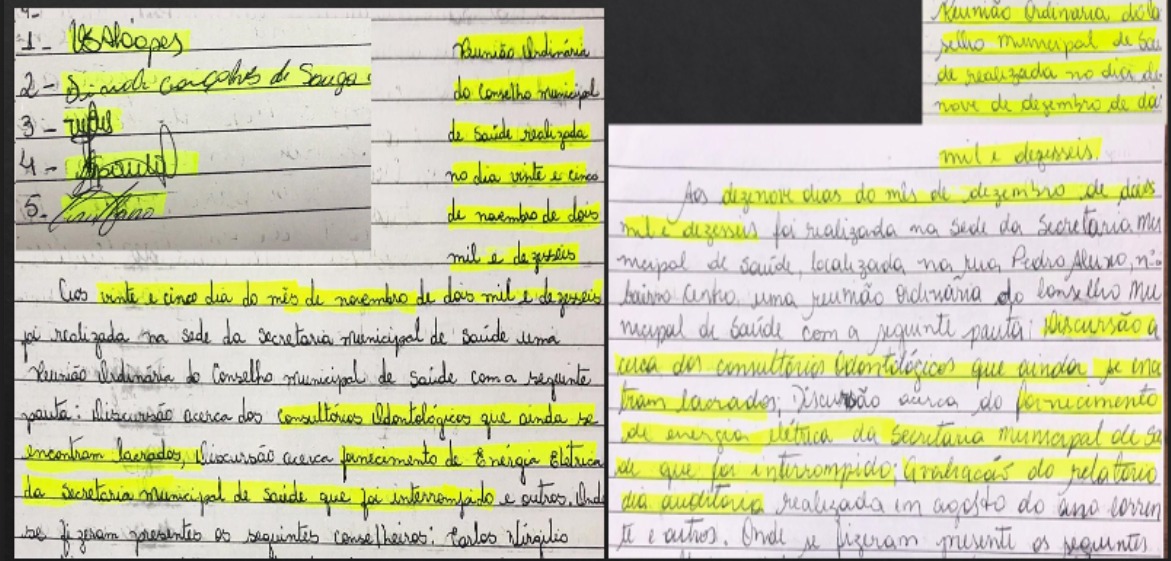 1-
2- Gonçalves de Souza
3-
4-
5.
Reunião Ordinária
do Conselho municipal
de saúde realizada
no dia vinte e cinco
de novembro de dois
mil e dezesseis
Aos vinte e cinco dia do mês de novembro de dois mil e dezesseis
foi realizada na sede da secretaria municipal de saúde uma
Reunião Ordinária do Conselho municipal de saúde com a seguinte
pauta: Discursão acerca dos consultórios Odontológicos que ainda se
encontram lacrados, Discursão acerca fornecimento de Energia Elétrica
da secretaria municipal de saúde que foi interrompido e outros. Onde
se fizeram presentes os seguintes conselheiros: Carlos Virgílio
Reunião Ordinaria do
selho municipal de Sau
de realizada no dia de
nove de dezembro de do
mil e dezesseis.
Aos dezenove dias do mês de dezembro de dois
mil e dezesseis foi realizada na Sede da Secretaria Mu
nicipal de Saúde, localizada na rua, Pedro Aleixo, nº
bairro Centro, uma reunião ordinária do Conselho Mu
nicipal de Saúde com a seguinte pauta: Discursão a
cerca dos consultórios Odontológicos que ainda se encon
tram lacrados; Discursão acerca do fornecimento
de energia elétrica da Secretaria Municipal de Sa
de que foi interrompido; Avaliação do relatório
dia auditoria realizada em agosto do ano corren
te e outros. Onde se fizeram presente os seguintes